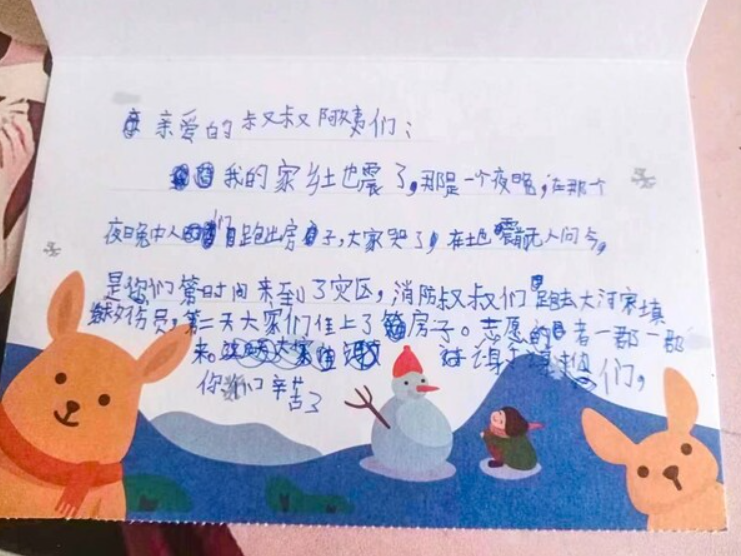 亲爱的叔叔阿姨们：
我的家乡土也震了，那是一个夜晚，在那个
夜晚中人们跑出房子，大家哭了，在土也震前无人问今，
是您们第时间来到了灾区，消防叔叔们跑去大河家填
救伤员，第二天大家们住上了房子。志愿者一郡一郡
来。们，
你们辛苦了